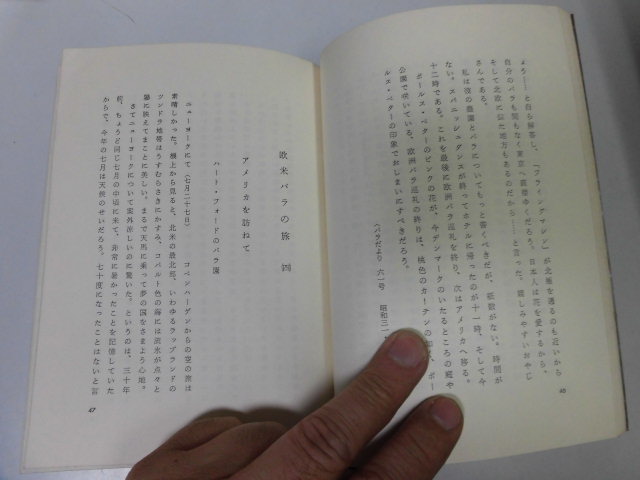 よう……と自ら解答し、「フライングマシン」が北極を通るのも近いから
自分のバラも間もなく東京へ直接ゆくだろう。日本人は花を愛するから、
そして北欧に似た地方もあるのだから……と言った。親しみやすいおやじ
さんである。
私は彼の農園とバラについてもっと書くべきだが、紙数がない。時間が
ない。スパニッシュダンスが終ってホテルに帰ったのが十一時、そして今
十二時である。これを最後に欧洲バラ巡礼を終り、次はアメリカへ移る。
ポールス・ベターのピンクの花が、今デンマークのいたるところの庭や
公園で咲いている。欧洲バラ巡礼の終りは、桃色のカーテンの
ルス・ベターの印象でおしまいにすべきだろう。
(バラだより 六一号 昭和三一
46
欧米バラの旅 (四)
アメリカを訪ねて
ハート・フォードのバラ園
ニューヨークにて(七月二十七日) コペンハーゲンからの空の旅は
素晴しかった。機上から見ると、北米の最北部、いわゆるラップランドの
ツンドラ地帯はうすむらさきにかすみ、コバルト色の海には流氷が点々と
陽に映えてまことに美しい。まるで天馬に乗って夢の国をさまよう心地。
さてニューヨークについて案外涼しいのに驚いた。というのは、三十年
前、ちょうど同じ七月の中頃に来て、非常に暑かったことを記憶していた
からで、今年の七月は天候のせいだろう。七十度になったことはないと言
47